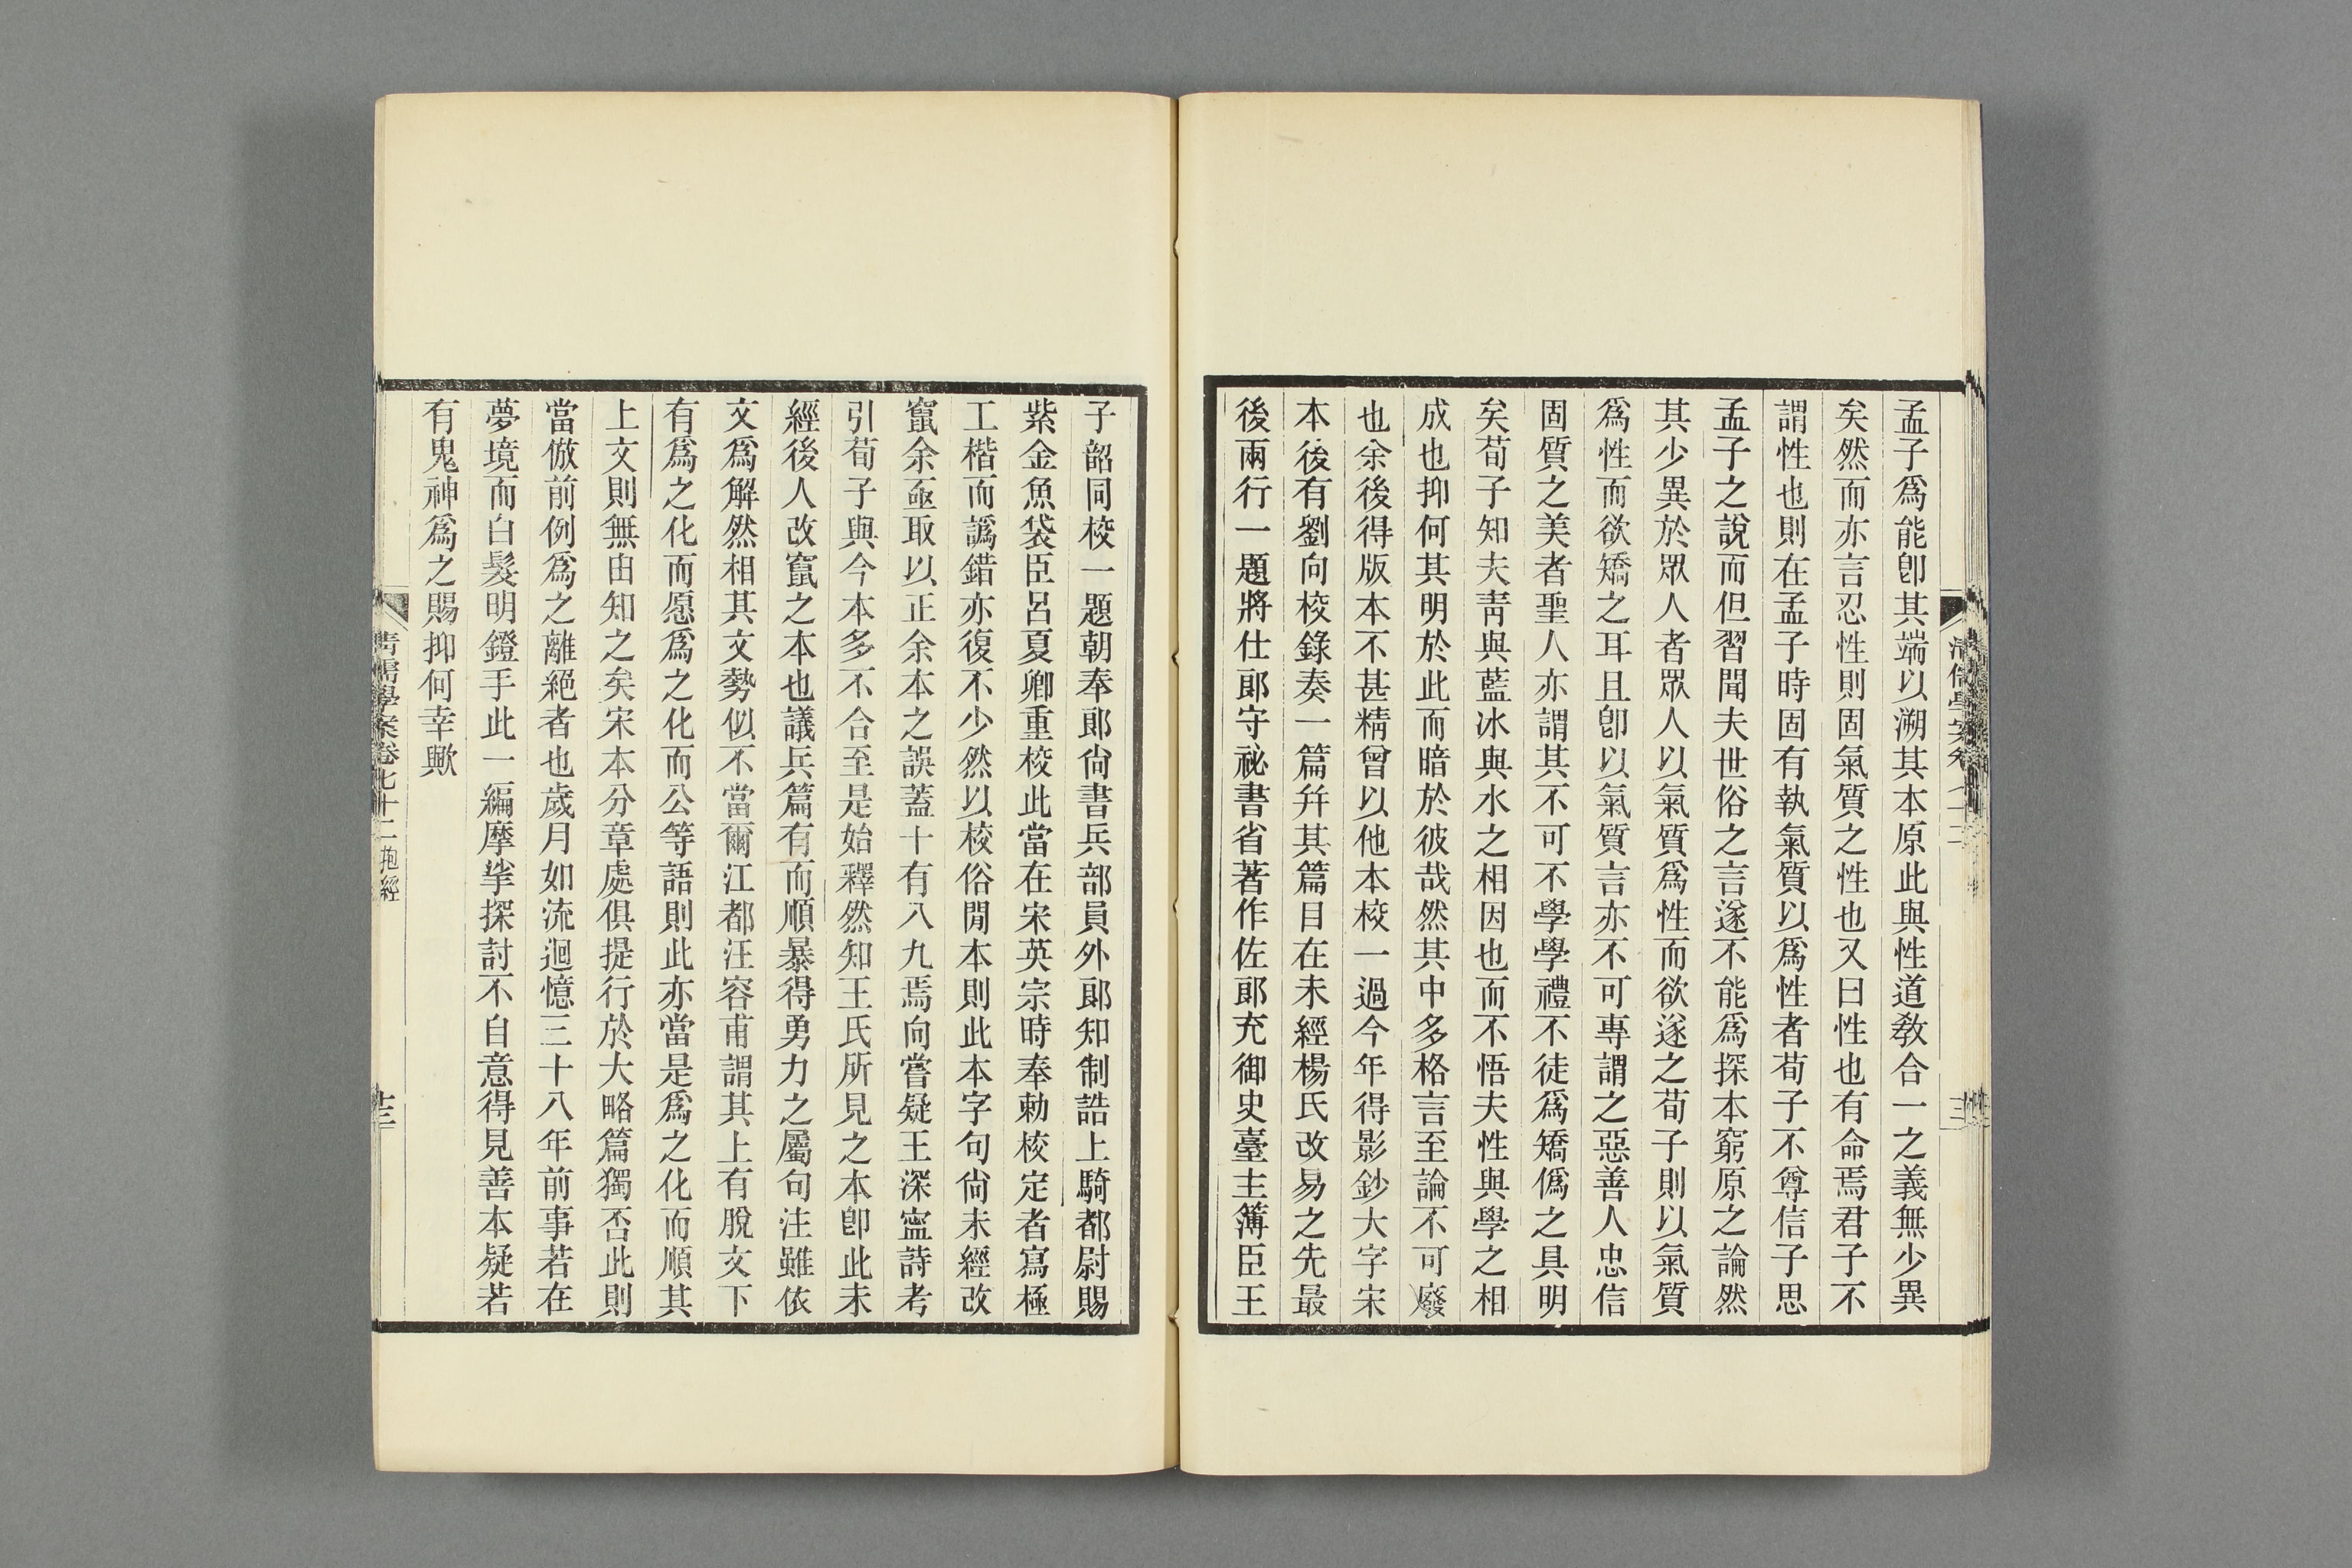 孟子爲能卽其端以溯其本原此與性道敎合一之義無少異
矣然而亦言忍性則固氣質之性也又曰性也有命焉君子不
謂性也則在孟子時固有執氣質以爲性者荀子不尊信子思
孟子之說而但習聞夫世俗之言遂不能爲探本窮原之論然
其少異於眾人者眾人以氣質爲性而欲遂之荀子則以氣質
爲性而欲矯之耳且卽以氣質言亦不可專謂之惡善人忠信
固質之美者聖人亦謂其不可不學學禮不徒爲矯僞之具明
矣荀子知夫靑與藍冰與水之相因也而不悟夫性與學之相
成也抑何其明於此而暗於彼哉然其中多格言至論不可廢
也余後得版本不甚精曾以他本校一過今年得影鈔大字宋
本後有劉向校錄奏一篇幷其篇目在未經楊氏改易之先最
後兩行一題將仕郞守祕書省著作佐郞充御史臺主簿臣王
子韶同校一題朝奉郞尙書兵部員外郞知制誥上騎都尉賜
紫金魚袋臣呂夏卿重校此當在宋英宗時奉勅校定者寫極
工楷而譌錯亦復不少然以校俗閒本則此本字句尙未經改
竄余亟取以正余本之誤蓋十有八九焉向嘗疑王深寧詩考
引荀子與今本多不合至是始釋然知王氏所見之本卽此未
經後人改竄之本也議兵篇有而順暴得勇力之屬句注雖依
文爲解然相其文勢似不當爾江都汪容甫謂其上有脫文下
有爲之化而愿爲之化而公等語則此亦當是爲之化而順其
上文則無由知之矣宋本分章處俱提行於大略篇獨否此則
當倣前例爲之離絕者也歲月如流迴憶三十八年前事若在
夢境而白髮明鐙手此一編摩挲探討不自意得見善本疑若
有鬼神爲之賜抑何幸歟
淸儒學案卷七十二 抱經